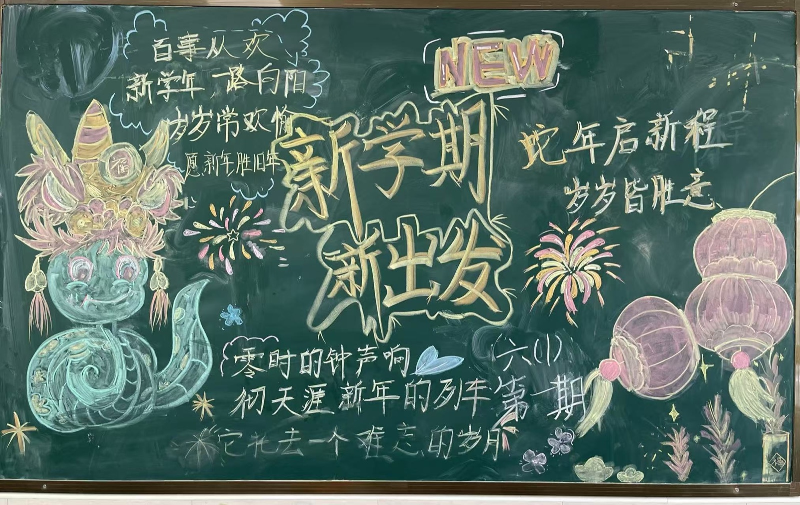 百事从欢
新学年一路向阳
岁岁常欢愉
愿新年胜旧年
NEW
新学期
新出发
蛇年启新程
岁岁皆胜意
零时的钟声响
彻天涯新年的列车
它礼去一个难忘的岁月
六(1)
第一期
福